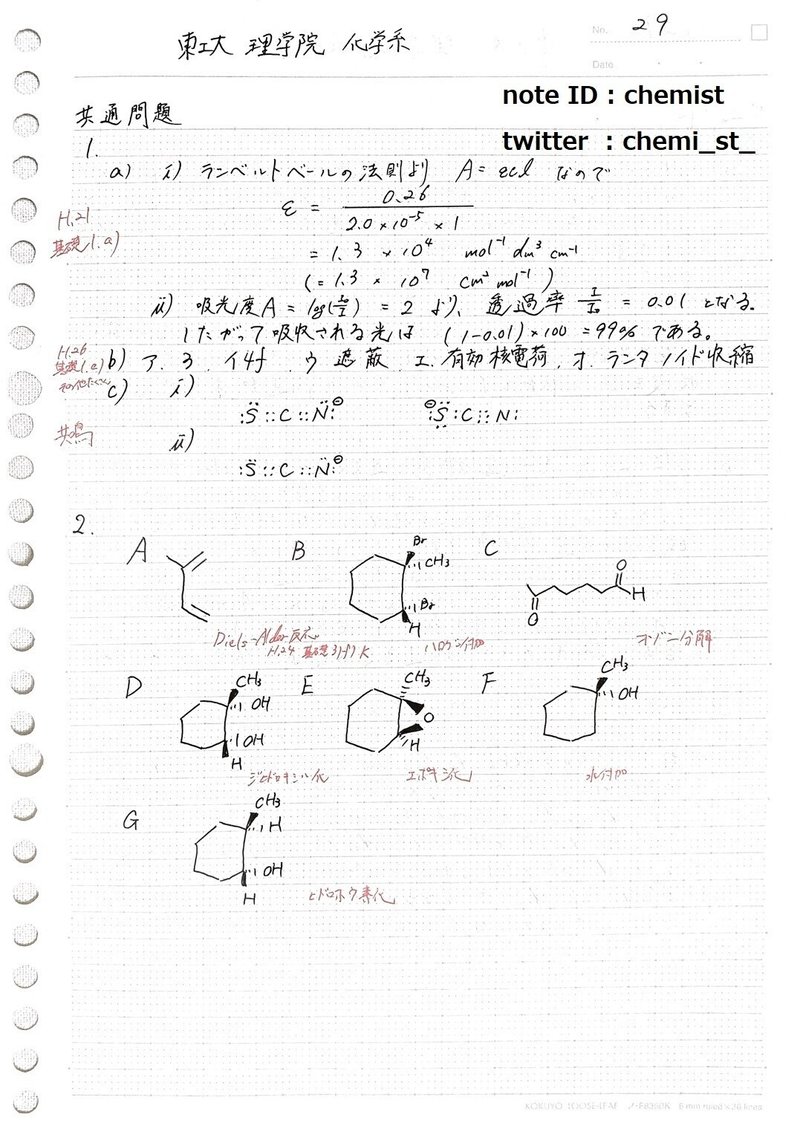 No. 29
東工大 理学院 化学系
Date
note ID : chemist
twitter : chemi_st_
共通問題
1.
a) i) ランベルトベールの法則より A = εcl なので
ε = 0.26 / 2.0 × 10⁻⁵ × 1
H.21
基礎1.a)
= 1.3 × 10⁴ mol⁻¹ dm³ cm⁻¹
(= 1.3 × 10⁷ cm² mol⁻¹)
ii) 吸光度A = log(I₀/I) = 2 より、透過率 I/I₀ = 0.01 となる。
したがって吸収される光は (1-0.01)×100 = 99% である。
H.26
基礎1.a)
その他たくさん
b) ア. 3 . イ 4f . ウ 遮蔽 . エ. 有効核電荷 . オ. ランタノイド収縮
c) i)
:S̈::C::N̈:⊖ ⊖:S̈:C:::N:
共鳴
ii)
:S̈::C::N̈:⊖
2.
A B Br CH₃ Br H C O O H
Diels-Alder反応
H.24 基礎3)
ハロゲン付加
オゾン分解
D CH₃ OH OH H E CH₃ O H F CH₃ OH
ジヒドロキシル化
エポキシ化
水付加
G CH₃ H OH H
ヒドロホウ素化
KOKUYO LOOSE-LEAF ノ-F836DK 6 mm ruled×36 lines